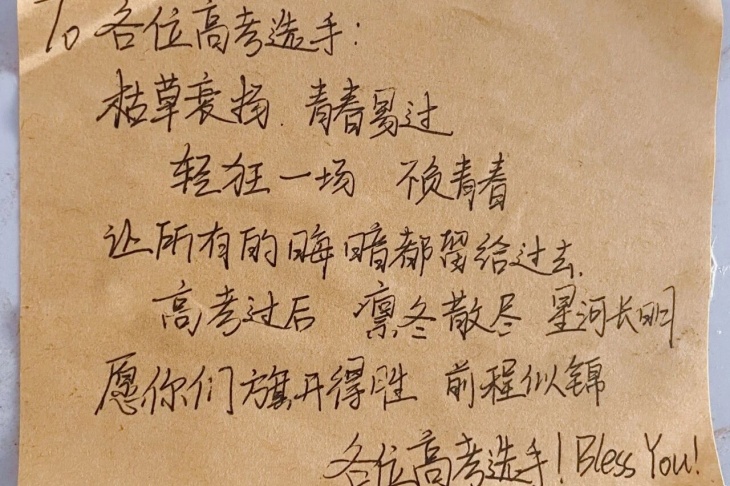 To 各位高考选手:
枯草衰杨 青春易过
轻狂一场 不负青春
让所有的晦暗都留给过去
高考过后 凛冬散尽 星河长明
愿你们旗开得胜 前程似锦
各位高考选手! Bless You!